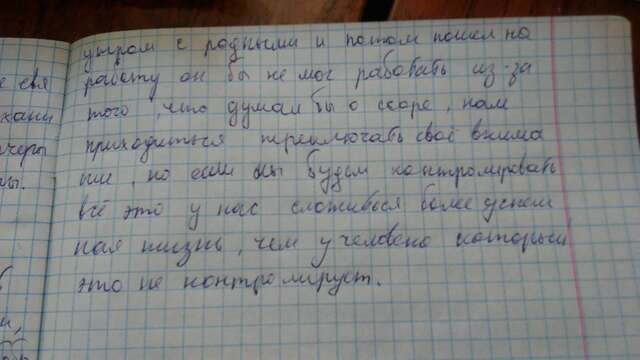 утром с родными и потом пошел на
е свя работу он бы не мог работать из-за
хани того, что думал бы о ссоре, нам
черы приходиться переключать своё внима
ы. ние, но если мы будем контролировать
всё это у нас сложиться более успеш
ная жизнь, чем у человека который
это не контролирует.